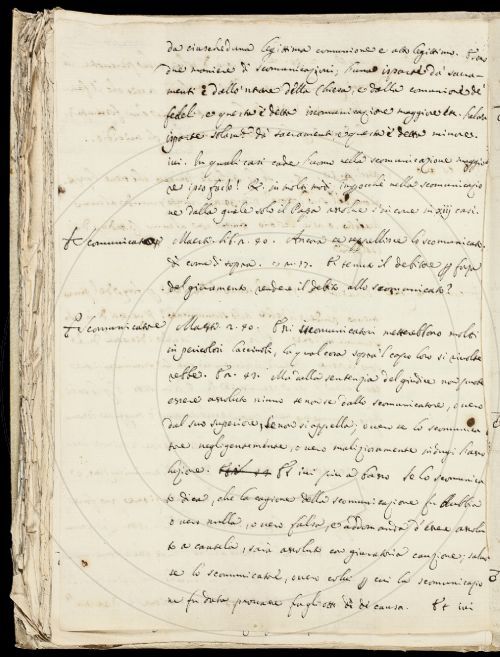 da ciascheduna legittima comunione e atto legittimo.
due maniere di scomunicazioni, l'una isparte da' sacra-
menti e dallo 'ntrare della Chiesa, e dalla comunione de'
fedeli, e questa è detta iscomunicazione maggiore
isparte solam. da' sacramenti, e questa è detta minore.
ivi. In quali casi cade l'uomo nella scomunicazione maggio-
re ipso facto? in molti modi, imperochè nella scomunicazio-
ne dalla quale solo il Papa assolve s'incorre in xiij casi.
scomunicato Maestr. lib. 2. 40. Ancora lo scomunicato,
di come di sopra. 2. 17. tenuto il debitore p forza
del giuramento, rendere il debito allo scomunicato?
scomunicatore Maestr. 2. 40. scomunicatori metterebbono molti
in pericolosi lacciuoli, la qual cosa sopra 'l capo loro si rivolte-
rebbe. 43. Ma dalla sentenzia del giudice non puote
essere assoluto niuno se non se dallo scomunicatore, o vero
dal suo superiore, se non si appella, o vero se lo scomunica-
tore negligentemente, o vero maliziosamente
luzione. ivi più a basso. Se lo scomunica-
to dica, che la cagione della scomunicazione fu dubbia
o vero nulla, o vero falsa, e addomanda d'essere assolu-
to a cautela, saia assoluto con giuratoria cauzione; salvo
se lo scomunicatore, o vero colui p cui la scomunicazio-
ne fu data, provare fra gli otto dì di causa. ivi